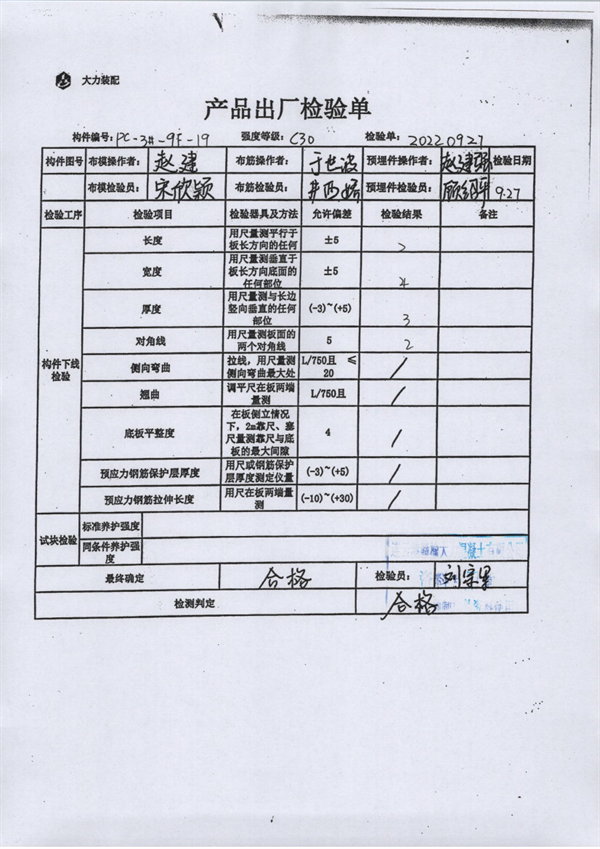 大力装配
产品出厂检验单
构件编号: PC-3#-9F-19 强度等级: C30 检验单: 20220927
构件图号 布模操作者: 赵建 布筋操作者: 于世波 预埋件操作者: 赵建强 检验日期
布模检验员: 宋欣颖 布筋检验员: 预埋件检验员: 9.27
检验工序 检验项目 检验器具及方法 允许偏差 检验结果 备注
构件下线检验
长度 用尺量测平行于板长方向的任何 ±5 2
宽度 用尺量测垂直于板长方向底面的任何部位 ±5 4
厚度 用尺量测与长边竖向垂直的任何部位 (-3)~(+5) 3
对角线 用尺量测板面的两个对角线 5 2
侧向弯曲 拉线，用尺量测侧向弯曲最大处 L/750且 ≤20 /
翘曲 调平尺在板两端量测 L/750且 /
底板平整度 在板侧立情况下，2m靠尺、塞尺量测靠尺与底板的最大间隙 4 /
预应力钢筋保护层厚度 用尺或钢筋保护层厚度测定仪量 (-3)~(+5) /
预应力钢筋拉伸长度 用尺在板两端量测 (-10)~(+30) /
试块检验 标准养护强度
同条件养护强度
最终确定 合格 检验员:
检测判定 合格